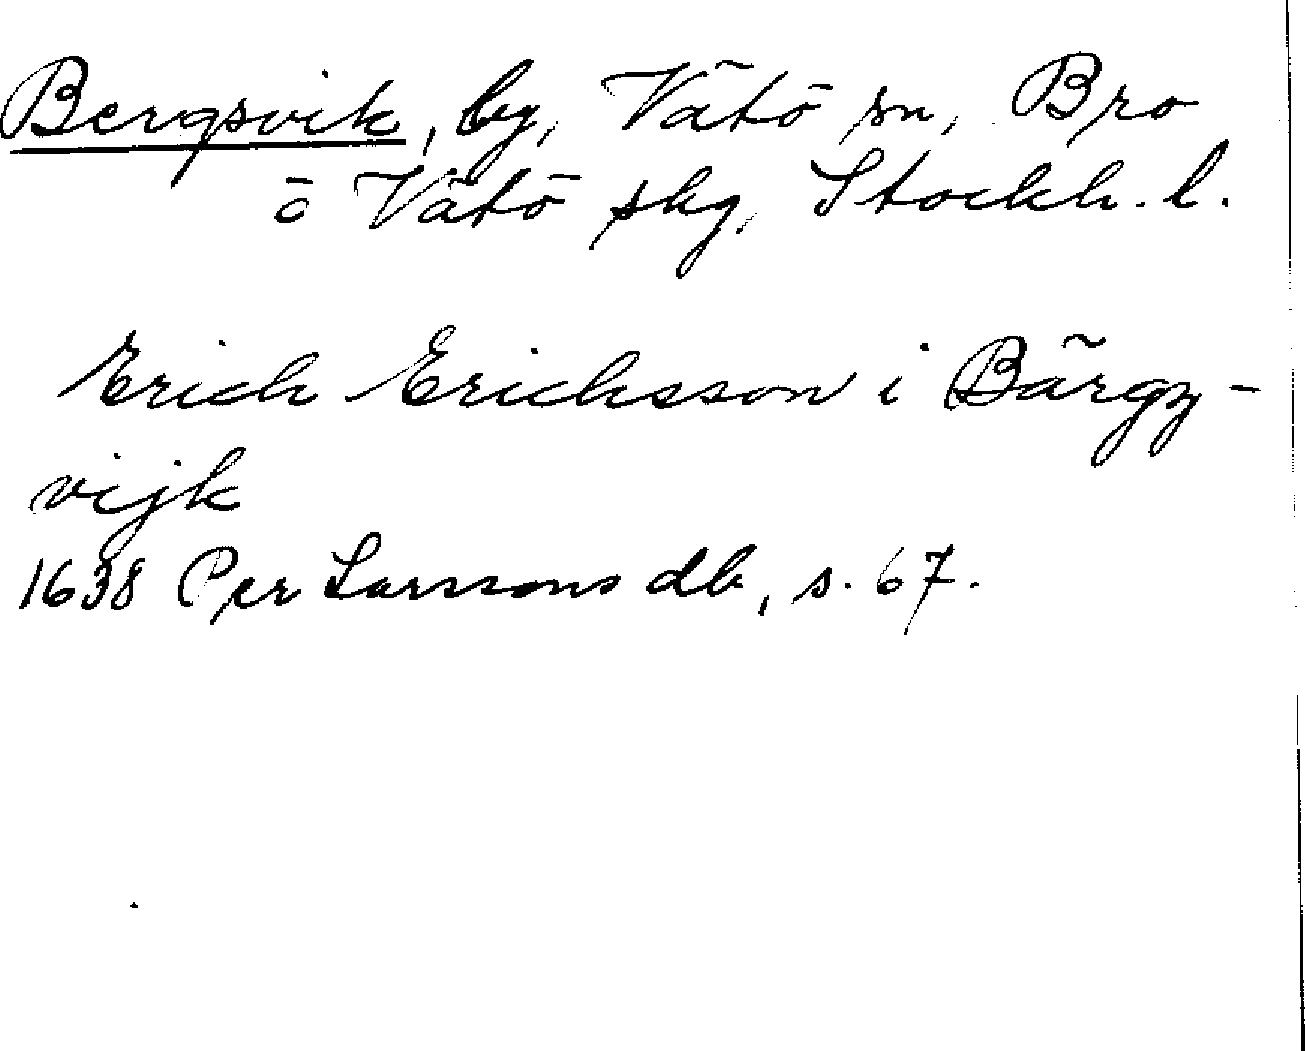 Bergsvik, by, Vätö sn, Bro
o Vätö skg, Stockh. l.
Erich Erichsson i Bärgz-
vijk
1638 Per Larssons db, s. 67.